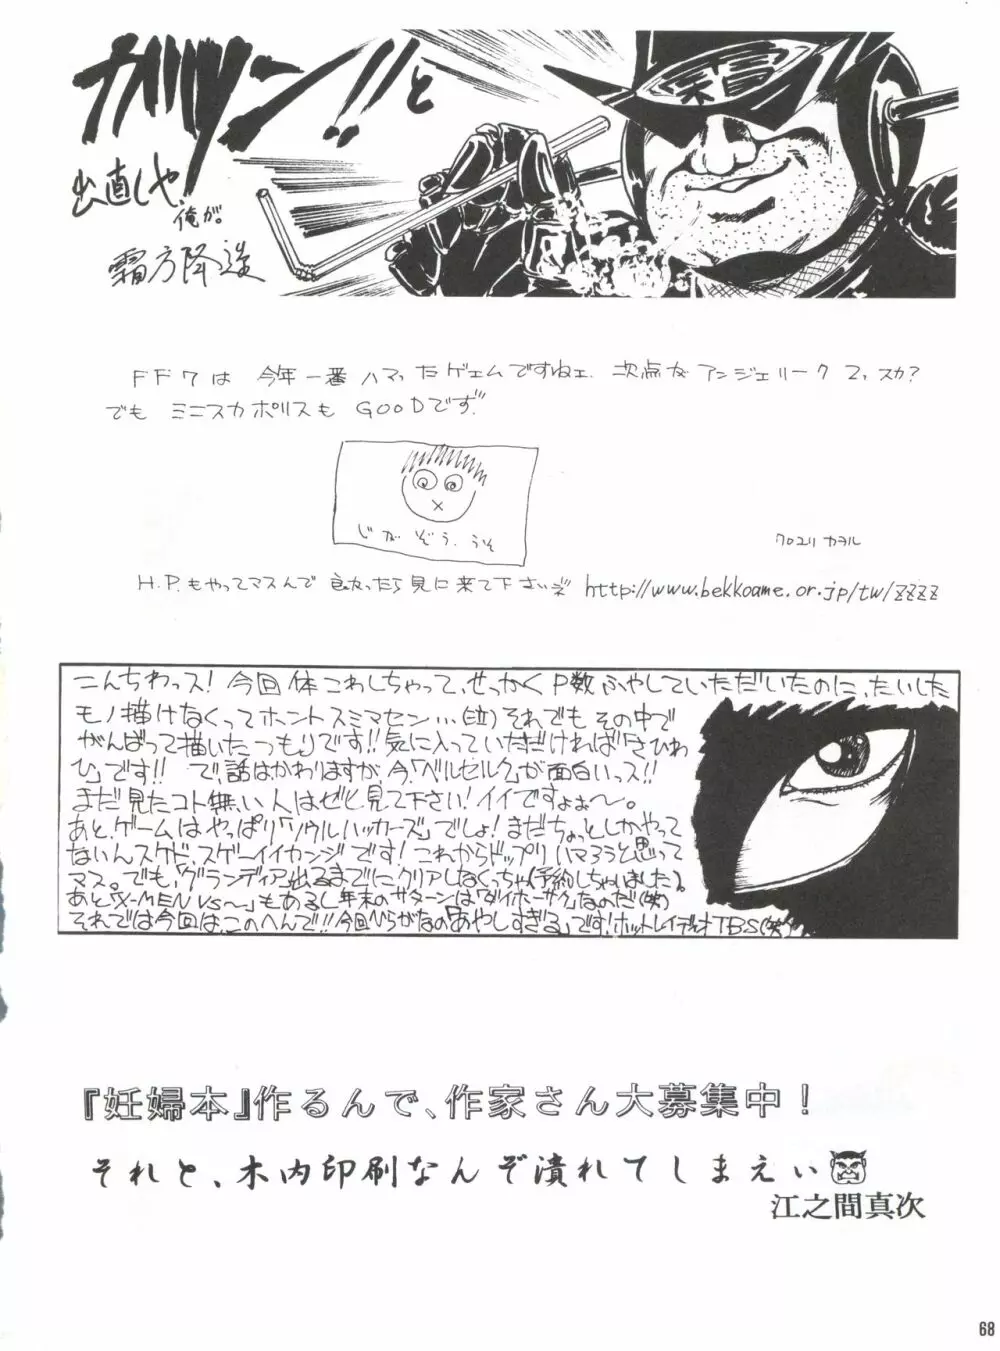 ガツン!!と
出直しや、
俺が。
霜方降造
FF7は 今年一番ハマったゲェムですねェ. 次点がアンジェリークZっスカ?
でも ミニスカポリスも GOODです。
じがぞう. うそ
クロユリ カヲル
H.P.もやってマスんで 良かったら見に来て下さいぞ http://www.bekkoame.or.jp/tw/zzzz
こんちわっス! 今回体こわしちゃって、せっかくP数ふやしていただいたのに、たいした
モノ描けなくってホントスミマセン…(泣)それでもその中で
がんばって描いたつもりです!!気に入っていただければ「さいわ
い」です!! で、話はかわりますが、今、「ベルセルク」が面白いっス!!
まだ見たコト無い人はぜひ見て下さい!イイですよぉ〜。
あと、ゲームはやっぱり「ソウルハッカーズ」でしょ!まだちょっとしかやって
ないんスケド、スゲーイイカンジです!これからドップリハマろうと思って
マス。でも、「グランディア」出るまでにクリアしなくっちゃ(予約しちゃいました)。
あと「X-MEN VS〜」もあるし年末のサターンは「ダイホーサク」なのだ(笑)
それでは今回はこのへんで!!今回ひらがなの「あやしすぎる」です!ホットレイディオTBS(笑)
『妊婦本』作るんで、作家さん大募集中!
それと、木内印刷なんぞ潰れてしまえぃ
江之間真次
68